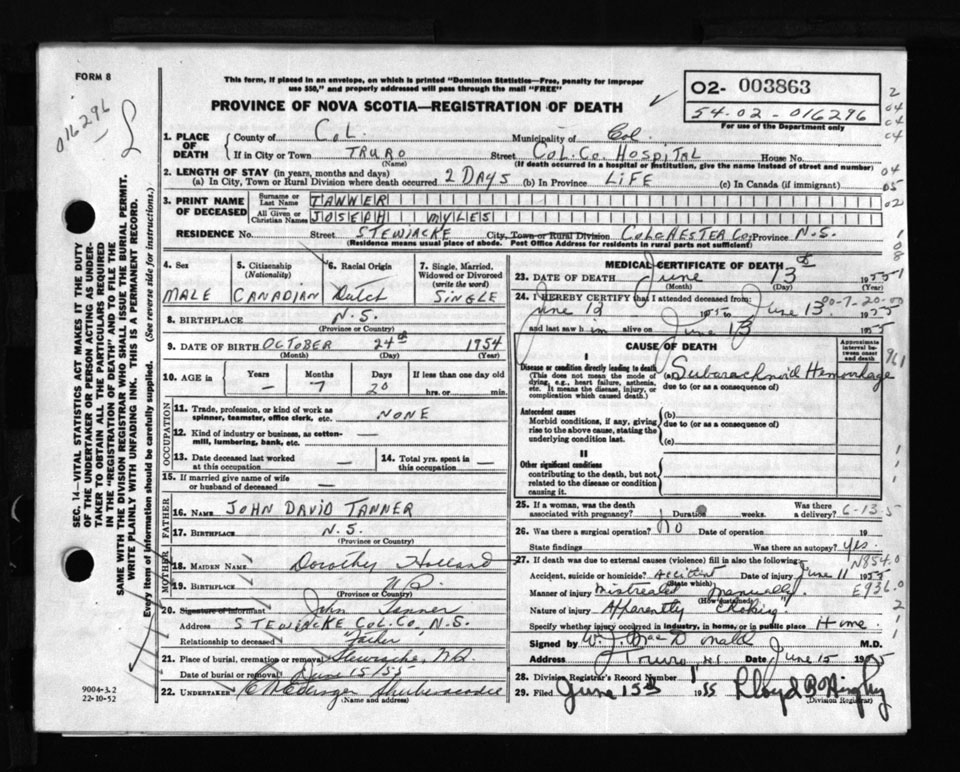 FORM 8
This form, if placed in an envelope, on which is printed "Dominion Statistics—Free, penalty for improper
use $50," and properly addressed will pass through the mail "FREE"
PROVINCE OF NOVA SCOTIA—REGISTRATION OF DEATH
02- 003863
54-02-016296
For use of the Department only
016296
1. PLACE OF DEATH
County of Col.
Municipality of Col
If in City or Town TRURO Street Col. Co. Hospital House No.
(Name) (If death occurred in a hospital or institution, give the name instead of street and number)
2. LENGTH OF STAY (in years, months and days)
(a) In City, Town or Rural Division where death occurred 2 Days (b) In Province LiFE (c) In Canada (if immigrant)
3. PRINT NAME OF DECEASED
Surname or Last Name TANNER
All Given or Christian Names JOSEPH MYLES
RESIDENCE No. Street STEWIACKE City, Town or Rural Division COLCHESTER Co, Province N.S.
(Residence means usual place of abode. Post Office Address for residents in rural parts not sufficient)
4. Sex
MALE
5. Citizenship (Nationality)
CANADIAN
6. Racial Origin
Dutch
7. Single, Married, Widowed or Divorced (write the word)
SINGLE
8. BIRTHPLACE N.S.
(Province or Country)
9. DATE OF BIRTH OCTOBER 24th 1954
(Month) (Day) (Year)
10. AGE in Years Months Days If less than one day old
— 7 20 hrs. or min.
OCCUPATION
11. Trade, profession, or kind of work as spinner, teamster, office clerk, etc. NONE
12. Kind of industry or business, as cotton-mill, lumbering, bank, etc. —
13. Date deceased last worked at this occupation —
14. Total yrs. spent in this occupation —
15. If married give name of wife or husband of deceased —
FATHER
16. NAME JOHN DAVID TANNER
17. BIRTHPLACE N.S.
(Province or Country)
MOTHER
18. MAIDEN NAME Dorothy Holland
19. BIRTHPLACE N.S.
(Province or Country)
20. Signature of informant John Tanner
Address STEWIACKE COL. CO. N.S.
Relationship to deceased "Father"
21. Place of burial, cremation or removal Stewiacke, N.S.
Date of burial or removal June 15/55
22. UNDERTAKER Shubenacadie
(Name and address)
MEDICAL CERTIFICATE OF DEATH
23. DATE OF DEATH June 13th 1955
(Month) (Day) (Year)
24. I HEREBY CERTIFY that I attended deceased from:
June 12 1955 to June 13 1955
and last saw him alive on June 13 1955
CAUSE OF DEATH
Approximate interval between onset and death
I
Disease or condition directly leading to death
(This does not mean the mode of dying, e.g., heart failure, asthenia, etc. It means the disease, injury, or complication which caused death.)
(a) Subarachnoid Hemorrhage
due to (or as a consequence of)
Antecedent causes
Morbid conditions, if any, giving rise to the above cause, stating the underlying condition last.
(b)
due to (or as a consequence of)
(c)
II
Other significant conditions contributing to the death, but not related to the disease or condition causing it.
25. If a woman, was the death associated with pregnancy? Duration weeks. Was there a delivery?
6-13-5
26. Was there a surgical operation? No Date of operation 19
State findings Was there an autopsy? Yes.
27. If death was due to external causes (violence) fill in also the following:
N854.0
Accident, suicide or homicide? Accident Date of injury June 11 1955
(State which)
Manner of injury Mistreated manually E936.0
(How sustained)
Nature of injury Apparently "Choking"
Specify whether injury occurred in industry, in home, or in public place Home
Signed by W. J. MacDonald M.D.
Address Truro N.S. Date June 15 1955
28. Division Registrar's Record Number
29. Filed June 15th 1955
(Division Registrar)
SEC. 14—VITAL STATISTICS ACT MAKES IT THE DUTY
OF THE UNDERTAKER OR PERSON ACTING AS UNDER-
TAKER TO OBTAIN ALL THE PARTICULARS REQUIRED
IN THE "REGISTRATION OF DEATH" AND TO FILE THE
SAME WITH THE DIVISION REGISTRAR WHO SHALL ISSUE THE BURIAL PERMIT.
WRITE PLAINLY WITH UNFADING INK. THIS IS A PERMANENT RECORD.
Every item of information should be carefully supplied. (See reverse side for instructions.)
9004-3.2
22-10-52